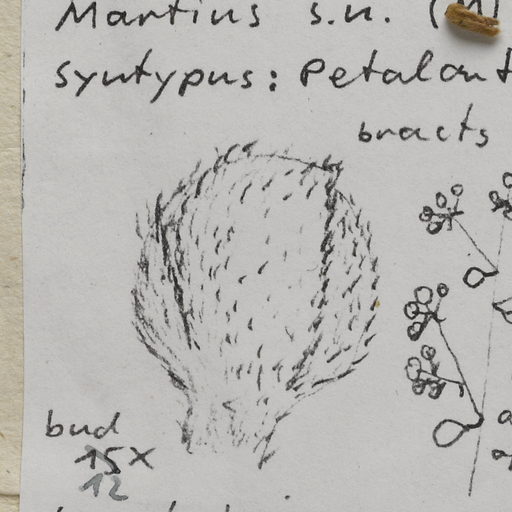 Martius s.n. (M)
Syntypus: Petalont
bracts
bud
15x
12